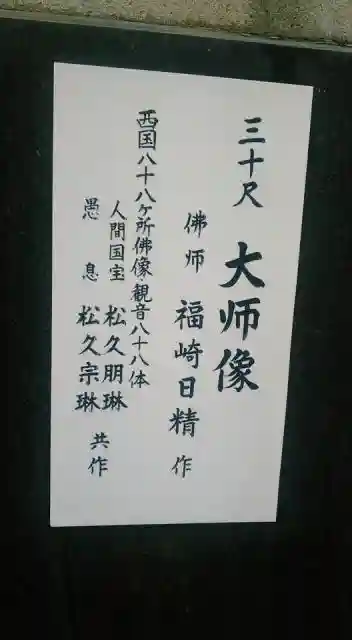 三十尺 大师像
佛师 福崎日精 作
西国八十八ケ所佛像・観音八十八体
人間国宝 松久朋琳
愚息 松久宗琳 共作